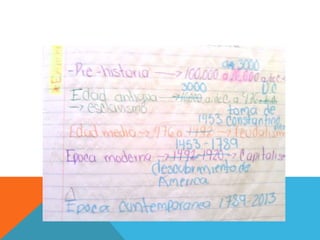 a 3000
-Pre-historia → 100,000 a a.d.c
3000 D.C
Edad antigua → a.d.c a 476
→ esclavismo toma de
1453 constantino
Edad media → 476 a 1492 → feudalismo
1453 - 1789
Epoca moderna → 1492-1920 → Capitalis
descubrimiento de
America
Epoca Cuntemporanea 1789-2013